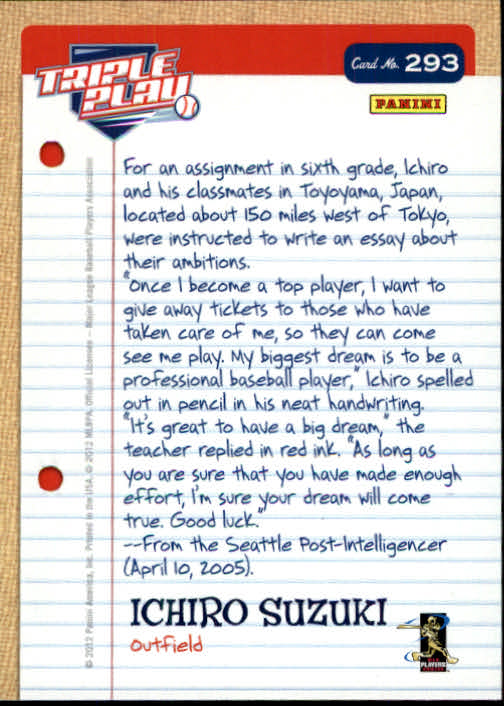 TRIPLE
PLAY
Card No. 293
PANINI
For an assignment in sixth grade, Ichiro
and his classmates in Toyoyama, Japan,
located about 150 miles west of Tokyo,
were instructed to write an essay about
their ambitions.
"Once I become a top player, I want to
give away tickets to those who have
taken care of me, so they can come
see me play. My biggest dream is to be a
professional baseball player," Ichiro spelled
out in pencil in his neat handwriting.
"It's great to have a big dream," the
teacher replied in red ink. "As long as
you are sure that you have made enough
effort, I'm sure your dream will come
true. Good luck."
---From the Seattle Post-Intelligencer
(April 10, 2005).
ICHIRO SUZUKI
Outfield
PLAYERS
© 2012 Panini America, Inc. Printed in the USA. © 2012 MLBPA, Official Licensee – Major League Baseball Players Association